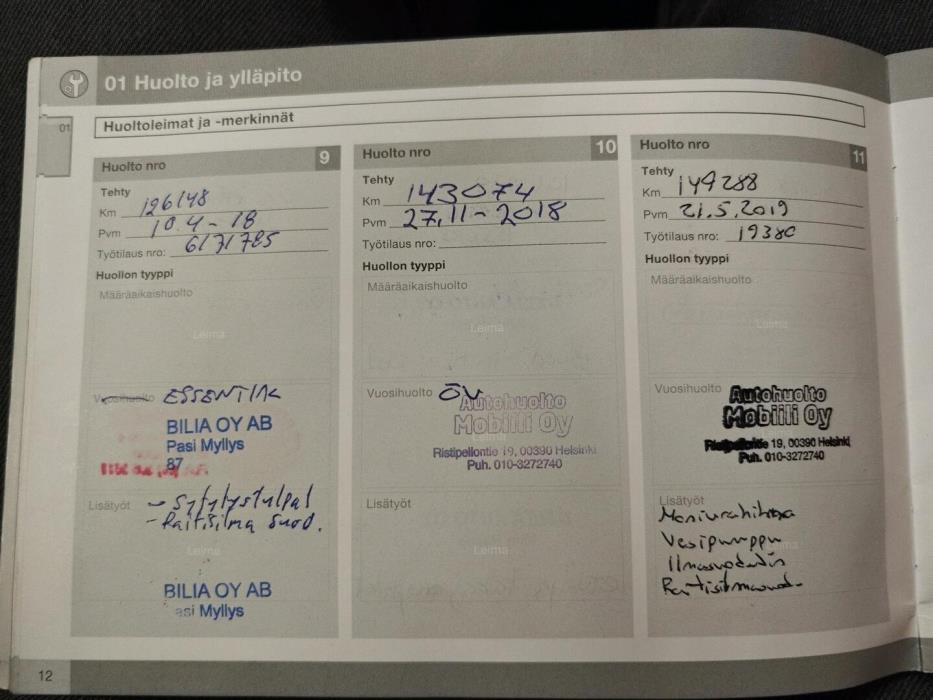 01 Huolto ja ylläpito
01
Huoltoleimat ja -merkinnät
Huolto nro 9
Tehty
Km 126148
Pvm 10.4-18
Työtilaus nro: 6131785
Huollon tyyppi
Määräaikaishuolto
Leima
Vuosihuolto ESSENTIAL
BILIA OY AB
Pasi Myllys
87
Lisätyöt - Sytytystulpat
- Raitisilma suod.
Leima
BILIA OY AB
asi Myllys
Huolto nro 10
Tehty
Km 143074
Pvm 27.11-2018
Työtilaus nro:
Huollon tyyppi
Määräaikaishuolto
Leima
Vuosihuolto ÖV
Autohuolto
Mobiili Oy
Ristipellontie 19, 00390 Helsinki
Puh. 010-3272740
Lisätyöt
Leima
Huolto nro 11
Tehty
Km 149288
Pvm 21.5.2019
Työtilaus nro: 19380
Huollon tyyppi
Määräaikaishuolto
Leima
Vuosihuolto
Autohuolto
Mobiili Oy
Ristipellontie 19, 00390 Helsinki
Puh. 010-3272740
Lisätyöt
Moniurahihna
Vesipumppu
Ilmasuodatin
Raitisilmasuod.
12